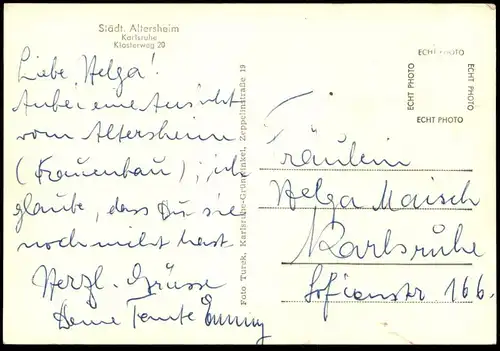 Städt. Altersheim
Karlsruhe
Klosterweg 20
Liebe Helga!
Anbei eine Ansicht
vom Altersheim
(Frauenbau); ich
glaube, dass Du sie
noch nicht hast
Herzl. Grüsse
Deine Tante Emmy
Foto Turck, Karlsruhe-Grünwinkel, Zeppelinstraße 19
ECHT PHOTO
ECHT PHOTO
ECHT PHOTO
ECHT PHOTO
Fräulein
Helga Maisch
Karlsruhe
Sofienstr 166.